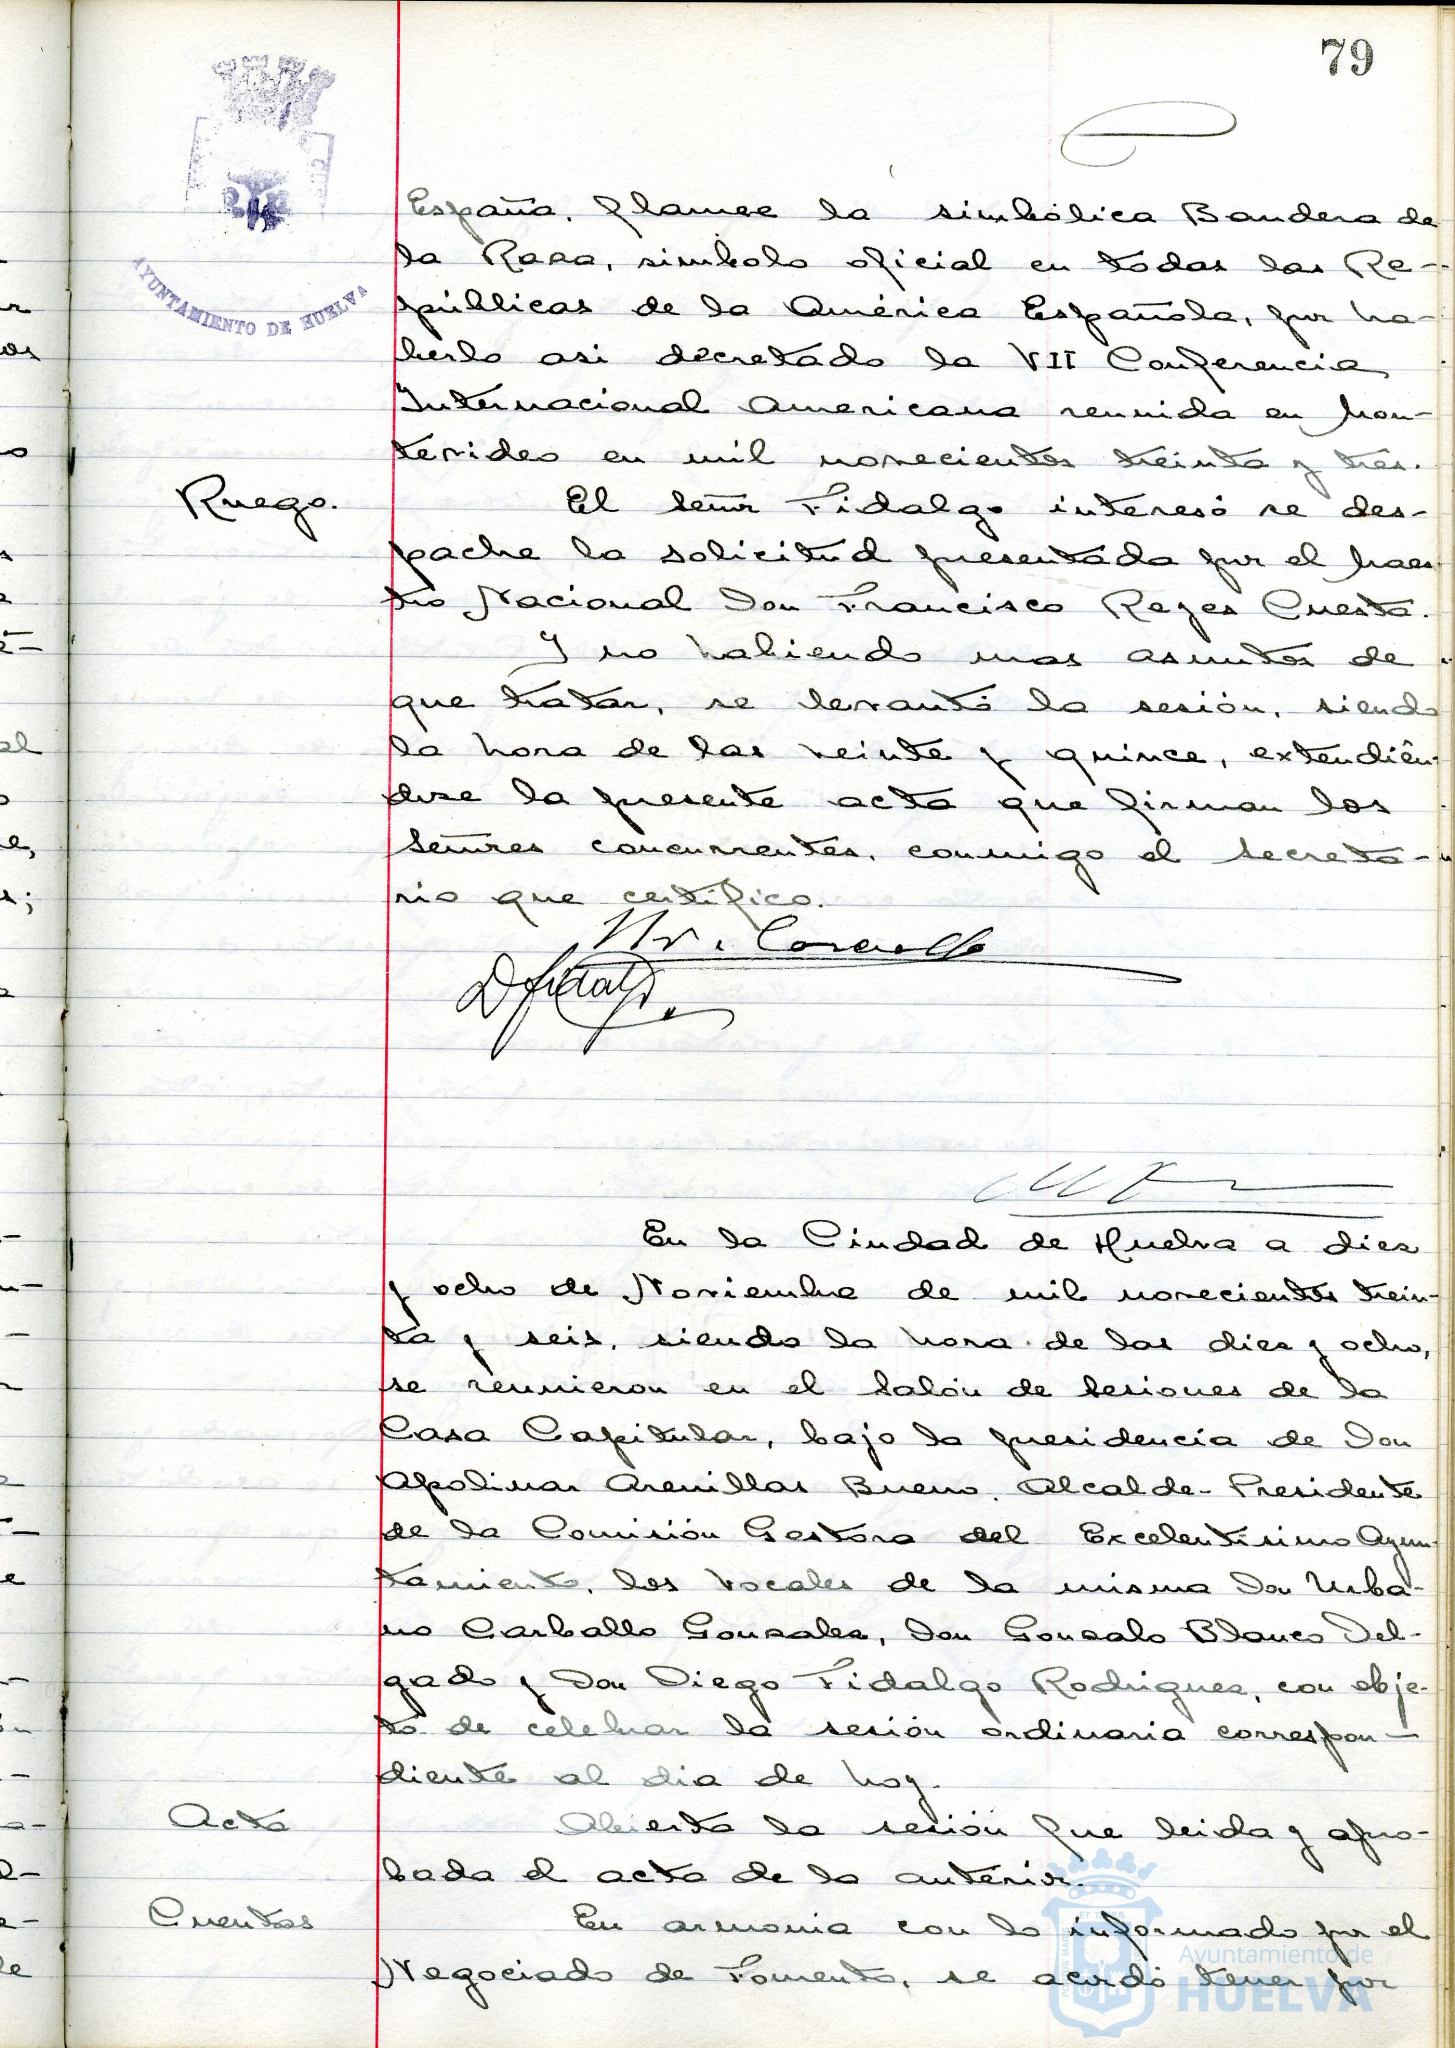 79
AYUNTAMIENTO DE HUELVA
España, flamee la simbólica Bandera de
la Raza, simbolo oficial en todas las Re-
públicas de la América Española, por ha-
berlo asi decretado la VII Conferencia
Internacional Americana reunida en Mon-
tevideo en mil novecientos treinta y tres.
Ruego.
El señor Fidalgo interesó se des-
pache la solicitud presentada por el Maes-
tro Nacional Don Francisco Reyes Cuesta.
Y no habiendo mas asuntos de
que tratar, se levantó la sesión, siendo
la hora de las veinte y quince, extendién-
dose la presente acta que firman los
señores concurrentes, conmigo el Secreta-
rio que certifico.
D Fidalgo
En la Ciudad de Huelva a diez
y ocho de Noviembre de mil novecientos trein-
ta y seis, siendo la hora de las diez y ocho,
se reunieron en el Salón de Sesiones de la
Casa Capitular, bajo la presidencia de Don
Apolinar Arenillas Bueno, Alcalde-Presidente
de la Comisión Gestora del Excelentísimo Ayun-
tamiento, los Vocales de la misma Don Urba-
no Carballo Gonzalez, Don Gonzalo Blanco Del-
gado y Don Diego Fidalgo Rodriguez, con obje-
to de celebrar la sesión ordinaria correspon-
diente al dia de hoy.
Acta
Abierta la sesión fue leida y apro-
bada el acta de la anterior.
Cuentas
En armonia con lo informado por el
Negociado de Fomento, se acordó tener por
Ayuntamiento de
HUELVA